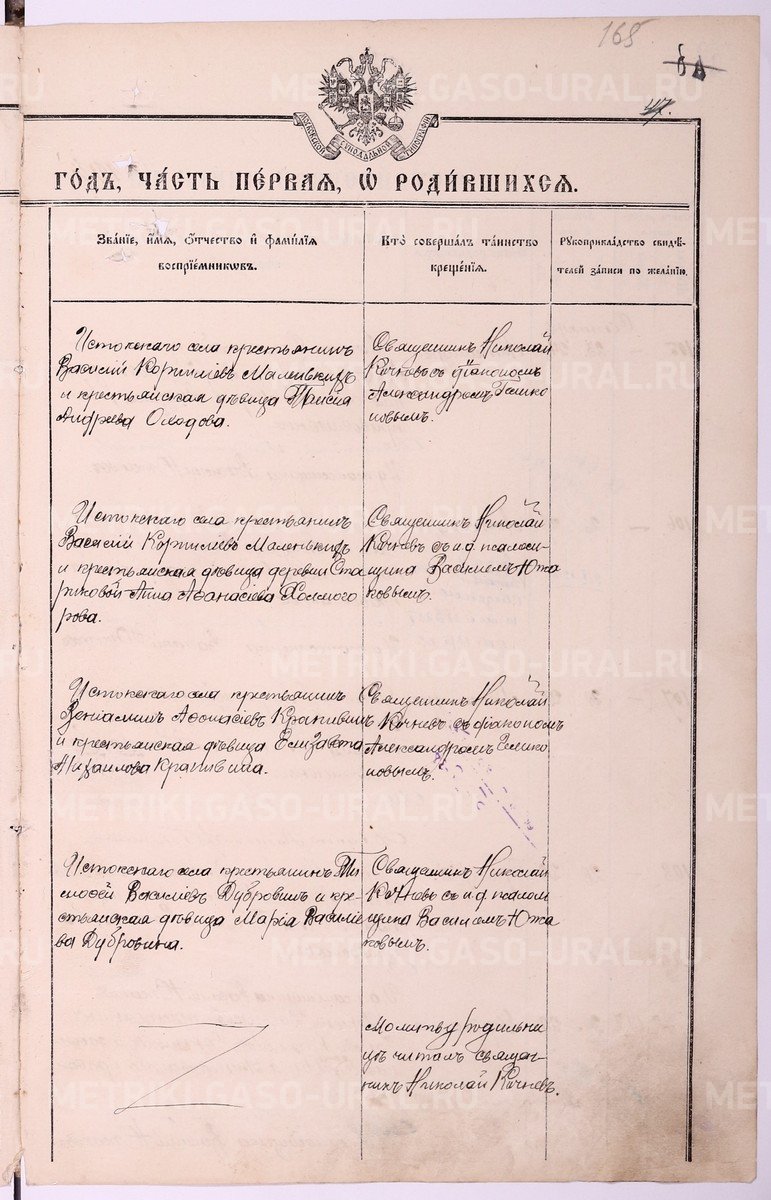 168
47.
МОСКОВСКОЙ СУНОДАЛЬНОЙ ТИПОГРАФІИ
ГО́ДЪ, ЧА́СТЬ ПЕ́РВАЯ, Ѡ҆ РОДИ́ВШИХСѦ.
Зва́нїе, и҆́мѧ, ѻ҆́тчество и҆ фами́лїѧ
воспрїе́мникѡвъ.
Кто̀ соверша́лъ та́инство
креще́нїѧ.
Рꙋкоприкла́дство свидѣ́-
телей за́писи по жела́нїю.
Истокскаго села крестьянинъ
Василій Корнилiевъ Маленькихъ
и крестьянская дѣвица Таисiя
Андреева Олодова.
Священникъ Николай
Кочневъ съ дiакономъ
Александромъ Голико
новымъ.
Истокскаго села крестьянинъ
Василій Корнилiевъ Маленькихъ
и крестьянская дѣвица деревни Ста
риковой Анна Аѳанасiева Холмого
рова.
Священникъ Николай
Кочневъ съ и д псалом
щика Василiемъ Южа
ковымъ.
Истокскаго села крестьянинъ
Венiаминъ Аѳонасiевъ Крапивинъ
и крестьянская дѣвица Елизавета
Михаилова Крапивина.
Священникъ Николай
Кочневъ съ дiакономъ
Александромъ Голико
новымъ.
Истокскаго села крестьянинъ Ти
моѳей Василiевъ Дубровинъ и кре
стьянская дѣвица Марiя Василiе
ва Дубровина.
Священникъ Николай
Кочневъ съ и д псалом
щика Василiемъ Южа
ковымъ.
Молитву родильни
цѣ читалъ священ-
никъ Николай Кочневъ.
METRIKI.GASO-URAL.RU